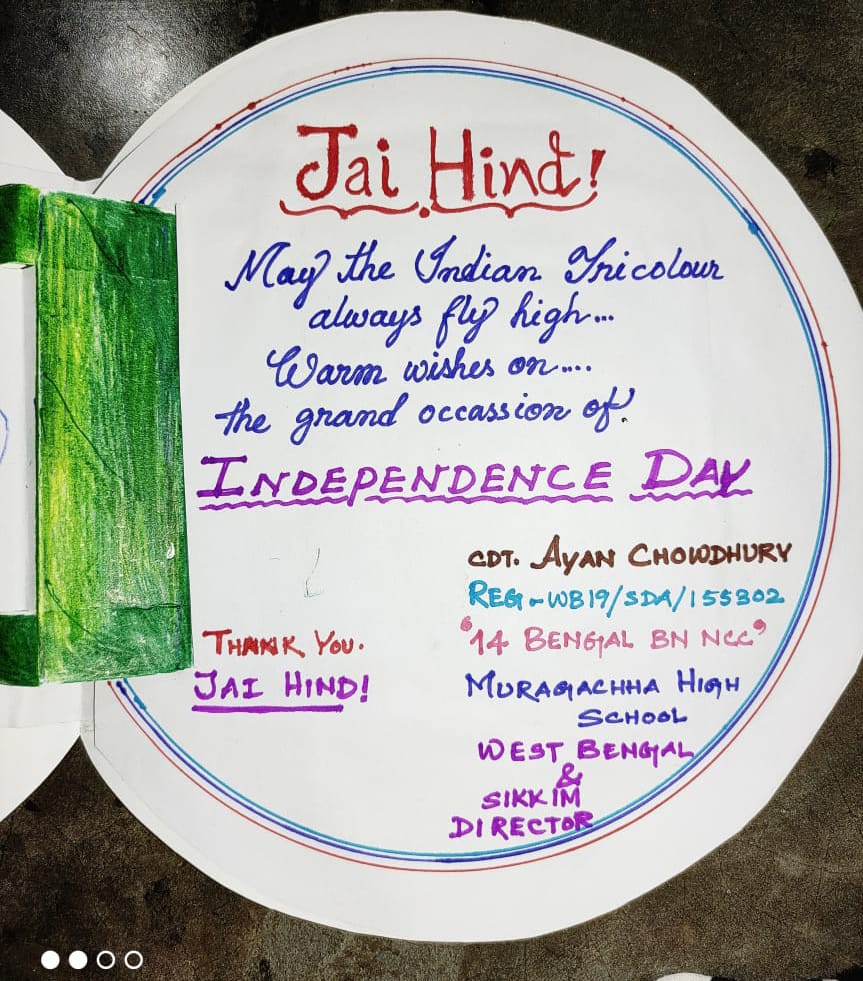 Jai Hind!
May the Indian Tricolour
always fly high...
Warm wishes on....
the grand occassion of.
INDEPENDENCE DAY
CDT. AYAN CHOWDHURY
REG-WB19/SDA/155302
"14 BENGAL BN NCC"
THANK YOU.
JAI HIND!
MURAGACHHA HIGH
SCHOOL
WEST BENGAL
&
SIKKIM
DIRECTOR